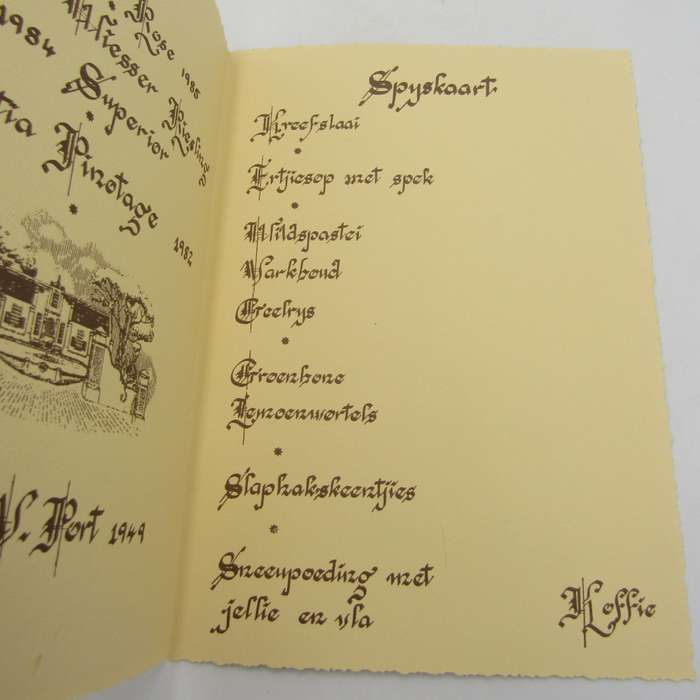 Rose 1985
Riesling
1984
Superior
Pinotage
1982
Port 1949
Spyskaart
Kreefslaai
Ertjiesop met spek
Wildspastei
Varkboud
Geelrys
Groenbone
Lemoenwortels
Slaphakskeentjies
Sneeupoeding met
jellie en vla
Koffie